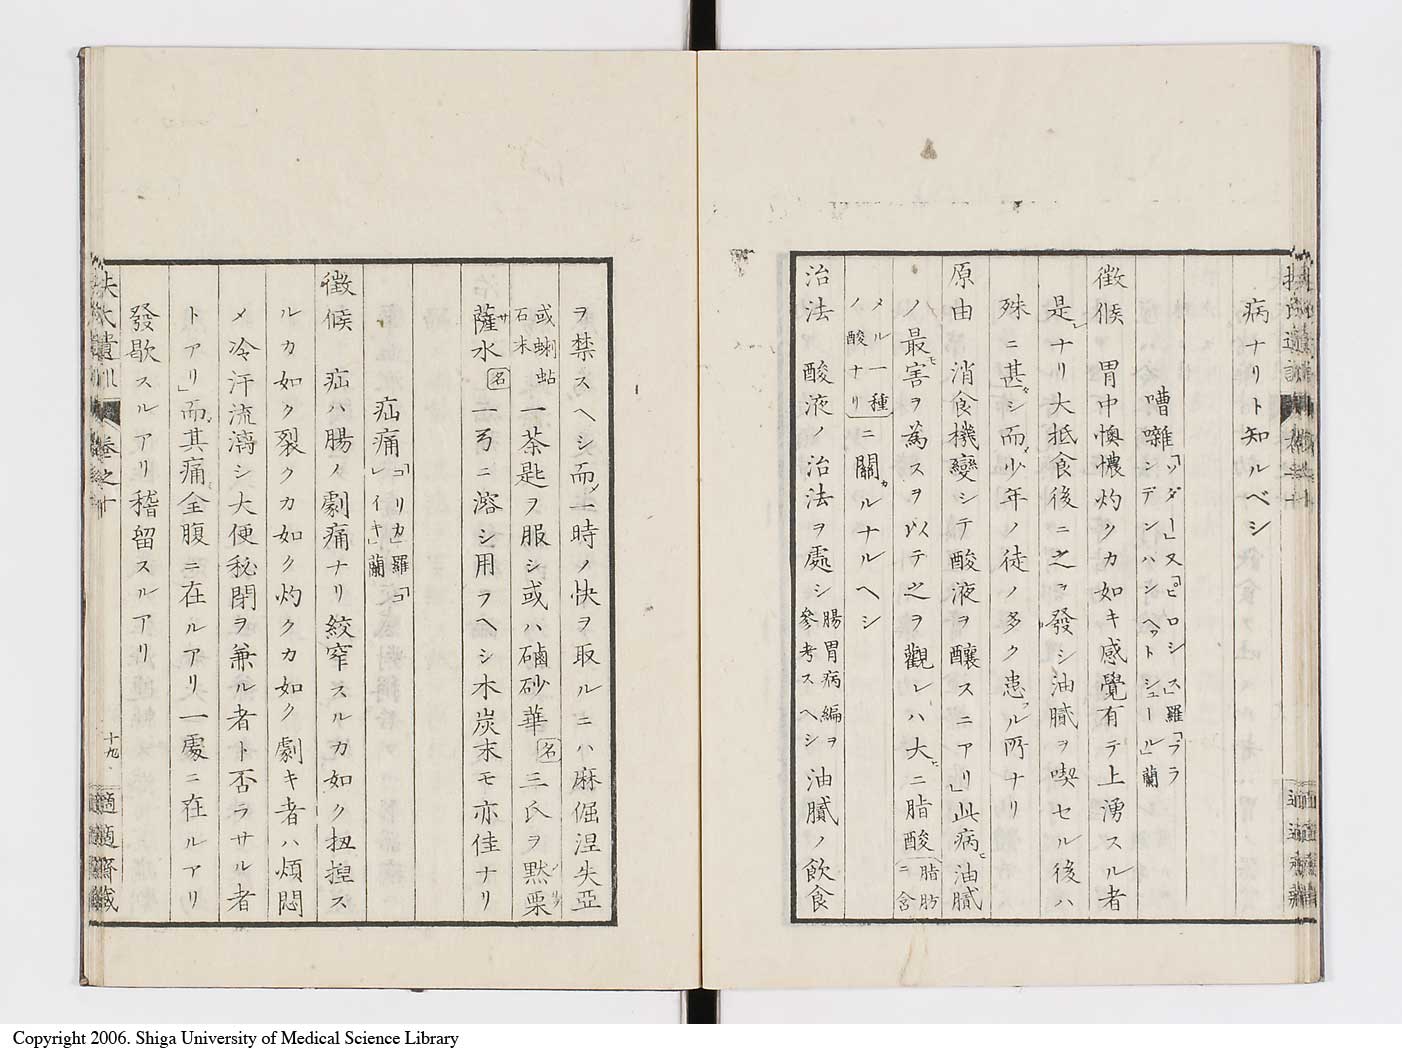 病ナリト知ルベシ
嘈囃「ソーダー」又「ピロシス」羅「ブランデンハンヘットシュール」蘭
徴候 胃中懊憹灼クカ如キ感覺有テ上湧スル者
是ナリ大抵食後ニ之ヲ發シ油膩ヲ喫セル後ハ
殊ニ甚シ而少年ノ徒ノ多ク患ル所ナリ
原由 消食機變シテ酸液ヲ釀スニアリ」此病油膩
ノ最害ヲ爲スヲ以テ之ヲ觀レハ大ニ脂酸脂肪ニ含
メル一種ノ酸ナリニ關ルナルヘシ
治法 酸液ノ治法ヲ處シ腸胃病編ヲ參考スヘシ油膩ノ飲食
ヲ禁スヘシ而一時ノ快ヲ取ルニハ麻倔涅失亞
或蝲蛄石末一茶匙ヲ服シ或ハ磠砂華名三氏ヲ黙栗
薩水名一弓ニ溶シ用ヲヘシ木炭末モ亦佳ナリ
疝痛「コリカ」羅「コレイキ」蘭
徴候 疝ハ腸ノ劇痛ナリ絞窄スルカ如ク扭揑ス
ルカ如ク裂クカ如ク灼クカ如ク劇キ者ハ煩悶
メ冷汗流漓シ大便秘閉ヲ兼ル者ト否ラサル者
トアリ」而其痛全腹ニ在ルアリ一處ニ在ルアリ
發歇スルアリ稽留スルアリ
扶氏遺訓 巻之十
十九
適適齋藏
Copyright 2006. Shiga University of Medical Science Library